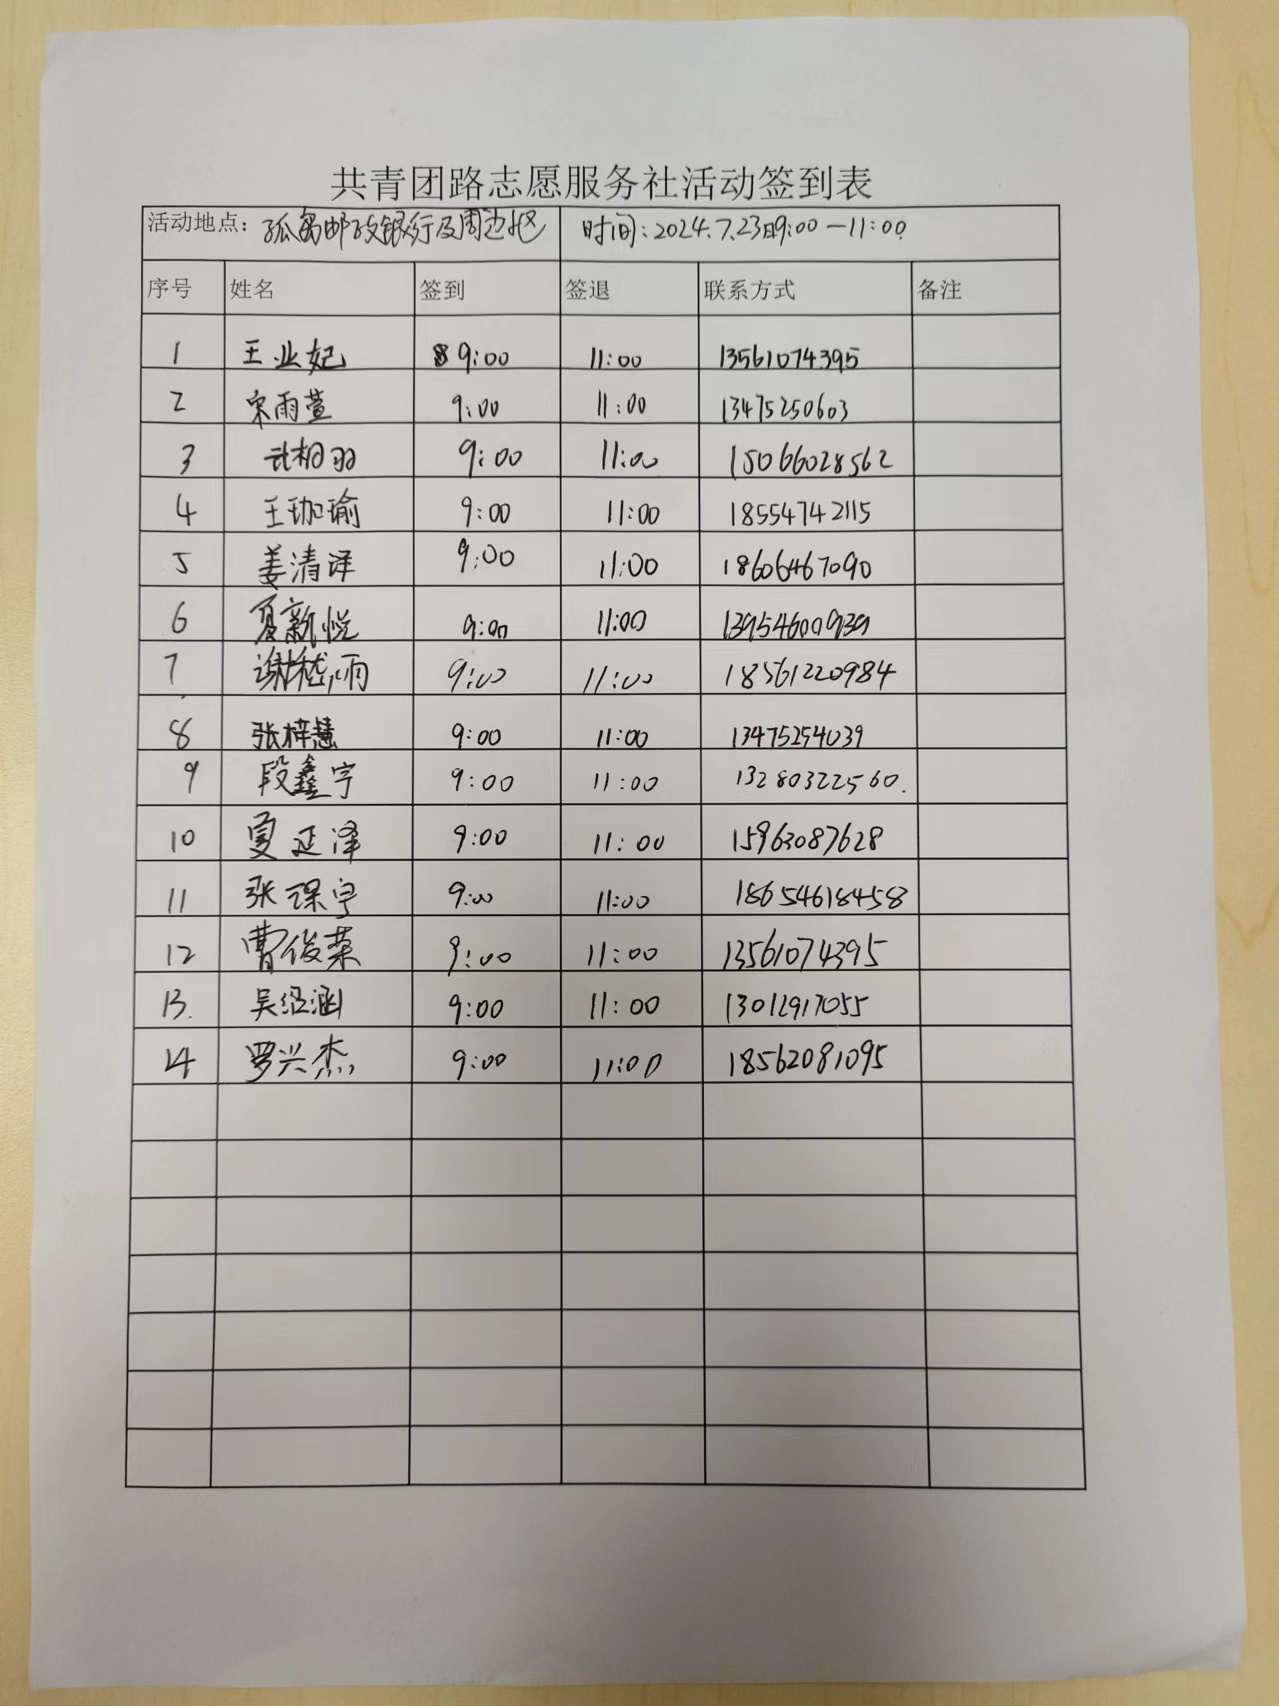 共青团路志愿服务社活动签到表
活动地点：孤岛邮政银行及周边地区 时间：2024.7.23日9:00—11:00
序号 姓名 签到 签退 联系方式 备注
1 王业妃 9:00 11:00 13561074395
2 宋雨萱 9:00 11:00 13475250603
3 武相羽 9:00 11:00 15066028562
4 王珈瑜 9:00 11:00 18554742115
5 姜清译 9:00 11:00 18606467090
6 夏新悦 9:00 11:00 13954600939
7 谢 雨 9:00 11:00 18561220984
8 张梓慧 9:00 11:00 13475254039
9 段鑫宇 9:00 11:00 13280322560.
10 夏延泽 9:00 11:00 15963087628
11 张琛宇 9:00 11:00 18654618458
12 曹俊荣 9:00 11:00 13561074395
13. 吴绍涵 9:00 11:00 13012917055
14 罗兴杰 9:00 11:00 18562081095